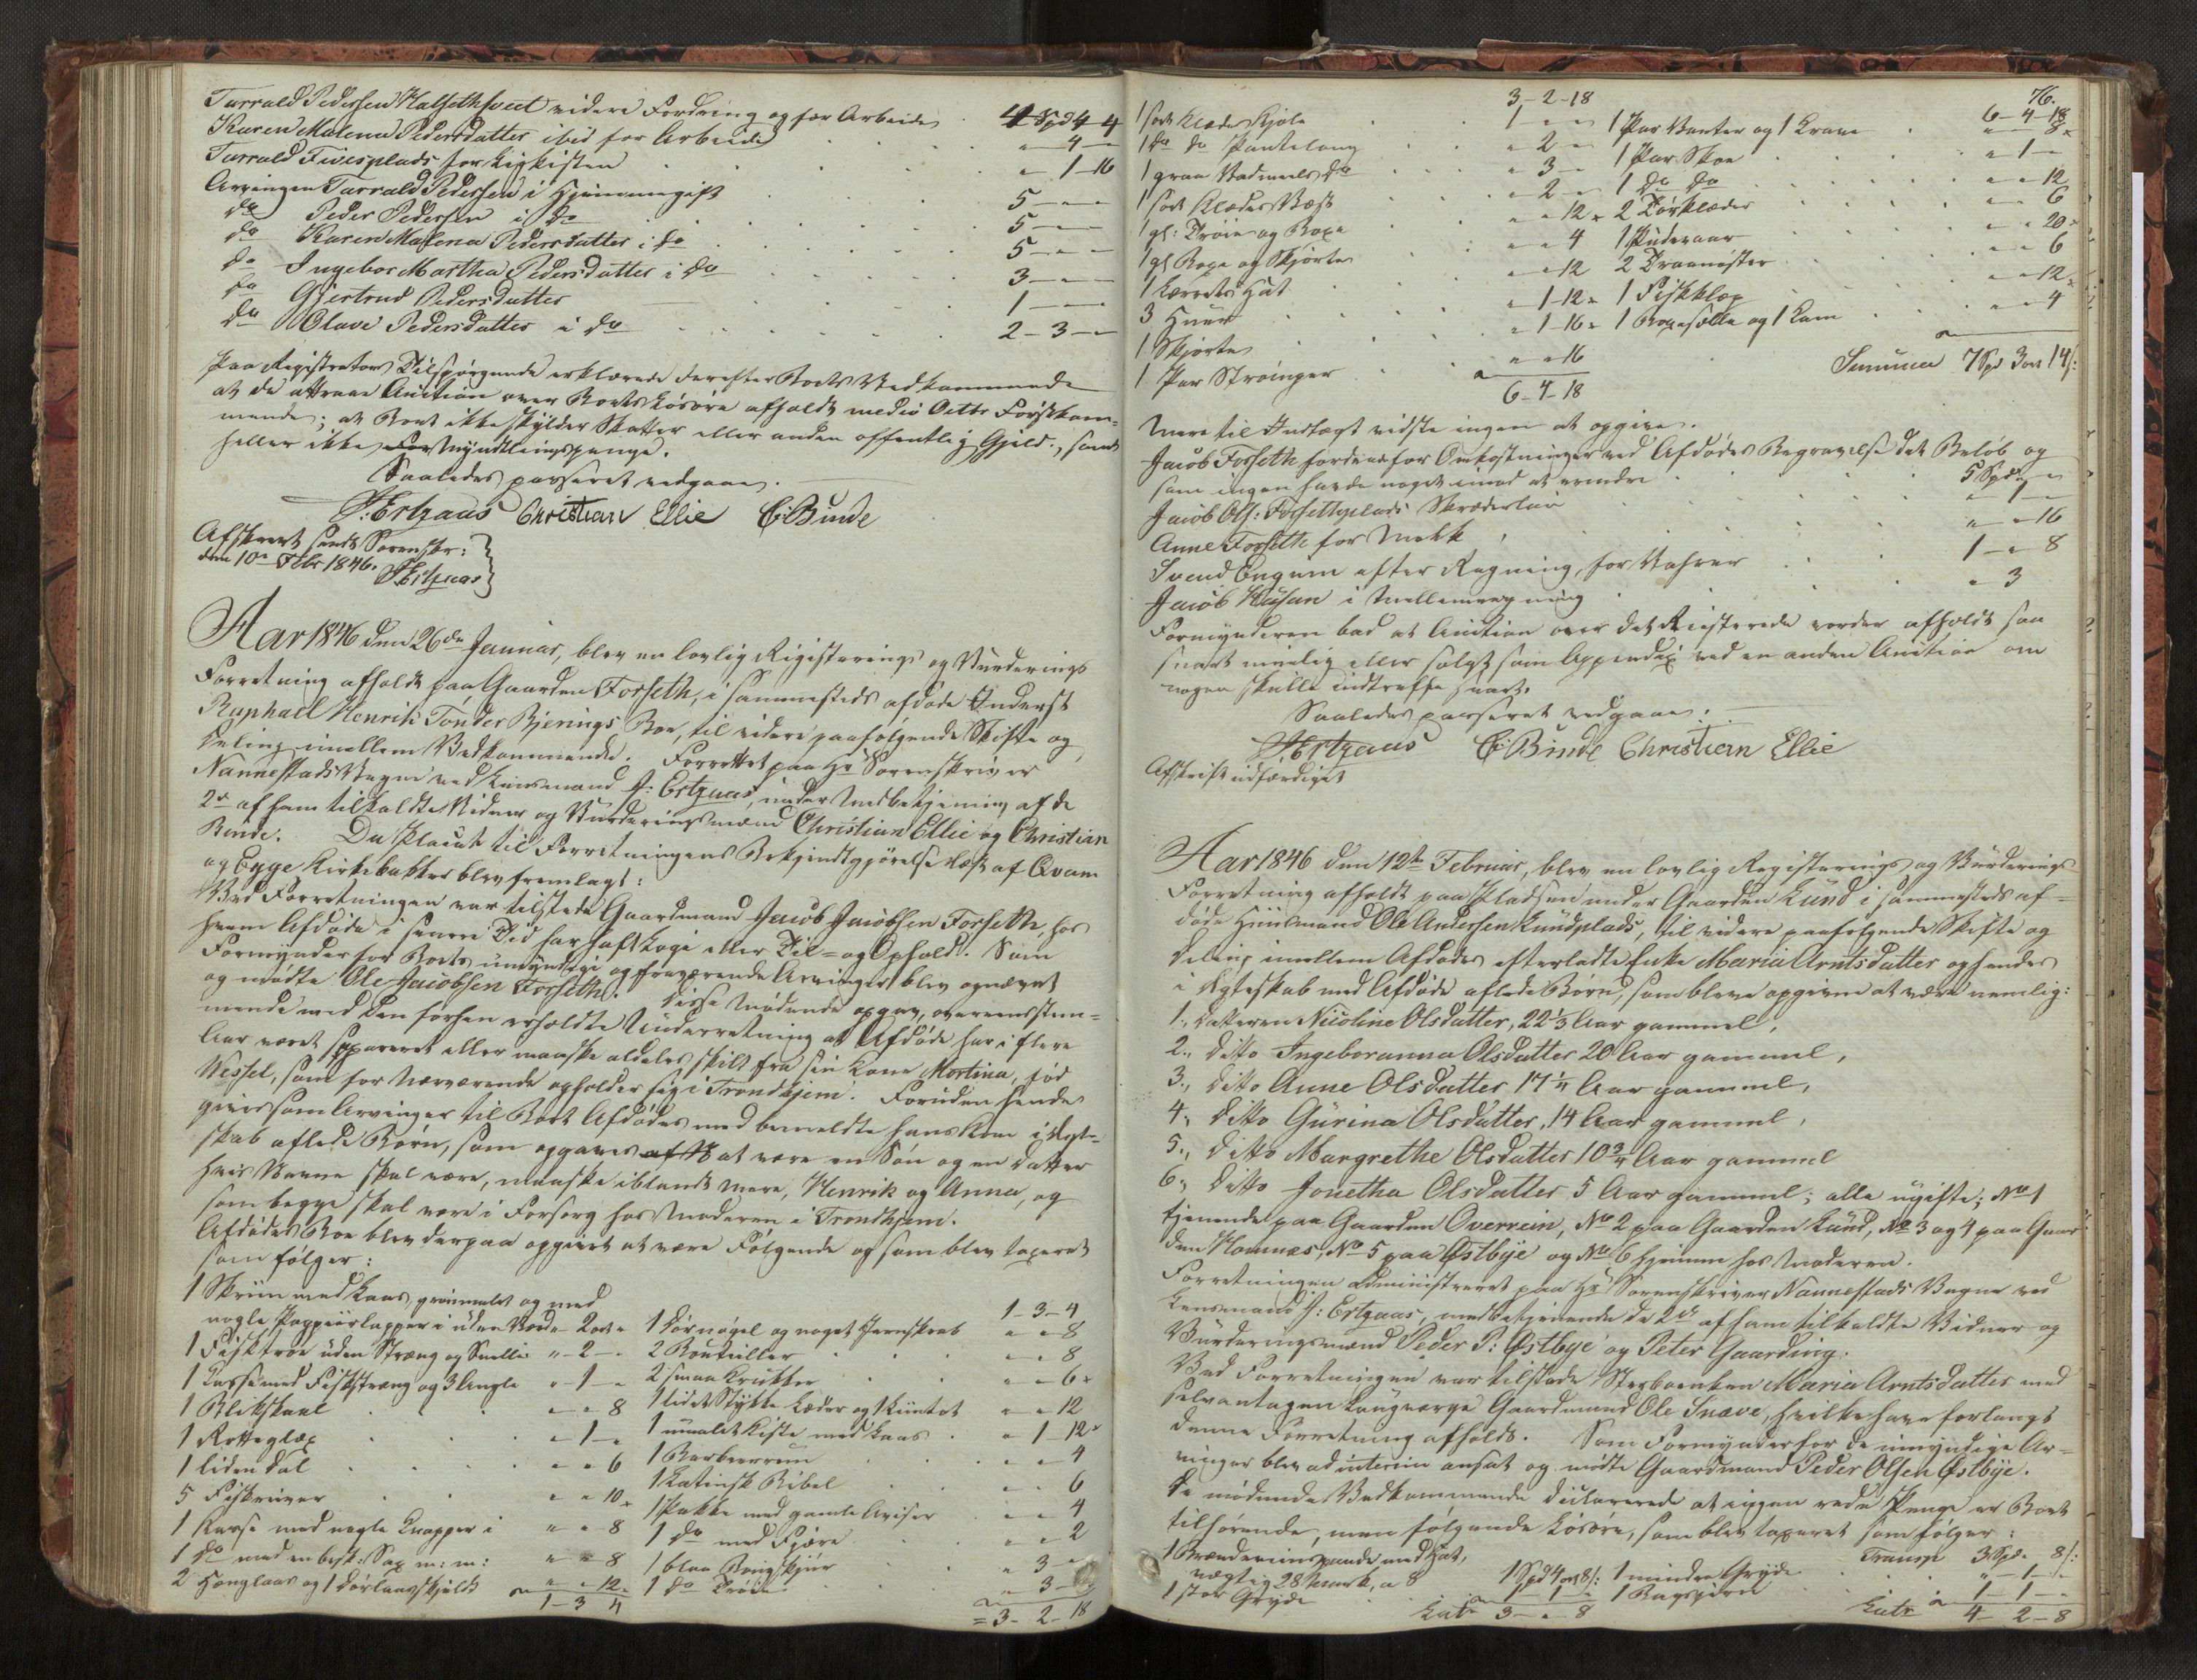 Tarrald Pedersen Halsethsveet videre Fordring og for Arbeide . 4 Spd 4 4
Karen Malena Pedersdatter ibid for Arbeide . . . " 4 "
Tarrald Finesplads for Ligkisten . . . " 1-16
Arvingen Tarrald Pedersen i Hjemmegift . . 5 - " - "
do Peder Pedersen i do . . . 5 - " - "
do Karen Malena Pedersdatter i do . . . 5 - " - "
do Ingebor Martha Pedersdatter i do . . . 3 - " - "
do Gjertrud Pedersdatter . . . 1 - " - "
do Olave Pedersdatter i do . . . 2 - 3 - "
Paa Registrators Tilspørgende erklærede derefter Boets Vedkommende
at de attraae Auction over Boets Løsøre afholdt medio Octbr førstkom-
mende; at Boet ikke skylder Skatter eller anden offentlig Gjeld, samt
heller ikke Formyndlingspenge.
Saaledes passeret vedgaaes.
P: Ertzaas Christian Ellie C: Binde
Afskrevt sendt Sorenskr:
den 10de Febr 1846.
P Ertzaas
Aar 1846 den 26de Januar, blev en lovlig Registerings og Vurderings
Forretning afholdt paa Gaarden Forseth, i sammesteds afdøde Inderst
Raphael Henrik Tønder Bjerings Boe, til videre paafølgende Skifte og
Deling imellem Vedkommende. Forrettet paa Hr Sorenskriver
Nannestads Vegne ved Lensmand P: Ertzaas, under Medbetjening af de
2de af ham tilkaldte Vidner og Vurderingsmænd Christian Ellie og Christian
Binde. Da Placat til Forretningens Bekjendtgjørelse læst af Qvam
og Egge Kirkebakker blev fremlagt:
Ved Forretningen var tilstede Gaardmand Jacob Jacobsen Forseth, hos
hvem Afdøde i senere Tid har haft Logi eller Til- og Ophold. Som
Formynder for Boets umyndige og fraværende Arvinger blev opnævnt
og mødte Ole Jacobsen Forseth. Disse Mødende opgav, overeensstem-
mende med den forhen erholdte Underretning at Afdøde har i flere
Aar været separeret eller maaske aldeles skilt fra sin Kone Martina, fød
Wessel, som for Nærværende opholder sig i Trondhjem. Foruden hende
gives som Arvinger til Boet Afdødes med bemeldte hans Kone i Ægte-
skab aflede Børn, som opgaves at være en Søn og en Datter
hvis Navne skal være, maaske iblandt mere, Henrik og Anna, og
som begge skal være i Forsorg hos Moderen i Trondhjem.
Afdødes Boe blev derpaa opgivet at være Følgende og som blev taxeret
som følger:
1 Skriin med Laas, grønmalet og med
nogle Pappiirlapper i uden Værd " 2 ort "
1 Fisketroe uden Stræng og Snelle " - 2 - "
1 Kasse med Fiskstræng og 3 Angle " - 1 - "
1 Blikskaal . . . " - " 8
1 Rotteglas . . . " - 1 - "
1 liden Dal . . . " - " 6
5 Fiskruser . . . " " 10
1 Kasse med nogle Knapper i " - " 8
1 do med en besk: Sax m: m: " - " 8
2 Hænglaas og 1 Dørlaasskjoldt " - " 12
1 - 3 4
1-3-4
1 Dørnøgel og noget Jernskrab " - " 8
2 Bouteiller . . . " - " 8
2 smaa Krukker . . . " - " 6
1 lidet Stykke Læder og 1 Kuntet " - " 12
1 umalet Kiste med Laas . " 1-12
1 Barbeerreem . . . " - " 4
1 Latinsk Bibel . . . " - " 6
1 Pakke med gamle Aviser . " - " 4
1 do med Fjære . . . " - " 2
1 blaa Bongskjør . . . " 3 -
1 do Trøie . . . " 3 -
= 3- 2- 18
76.
3-2-18
1 sort Klædes Kjole . . 1 - " "
1 do do Pantelong . . " 2 - "
1 graa Vadmels do . . " 3 - "
1 sort Klædes Væst . . " 2 - "
1 gl: Trøie og Boxe . . " " 12
1 gl Boxe og Skjorte . . " - " 4
1 Lærreds Hat . . " - " 12
3 Huer . . " 1-12
1 Skjorte . . " 1-16
1 Par Strømper . . " " 16
6-4-18
6-4-18
1 Par Vanter og 1 Krave . " " 8
1 Par Skoe . . " 1 - "
1 do do . . " " 12
2 Tørklæder . . " " 6
1 Pudevaar . . " " 20
2 Traanøster . . " " 6
1 Fiskklep . . " " 12
1 Boxesælle og 1 Kam . " " 4
Summa 7 Spd 3 ort 14 s:
Mere til Indtægt vidste ingen at opgive.
Jacob Forseth fordrer for Omkostninger ved Afdødes Begravelse det Beløb og
som ingen havde noget imod at erindre . . 5 Spd "
Jacob Ols: Forsethplads Skræderløn . . " 1 - "
Anne Forseth for Melk . . " " 16
Svend Engum efter Regning, for Vahrer . . 1 - " 8
Jacob Kusan i Mellemregning . . " 3
Formynderen bad at Auction over det Registerede vorder afholdt saa
snart muelig eller solgt som Appendix ved en anden Auction om
nogen skulle indtræffe snart.
Saaledes passeret vedgaaes.
P Ertzaas C: Binde Christian Ellie
Afskrift udfærdiget
Aar 1846 den 12te Februar, blev en lovlig Registerings og Vurderings
Forretning afholdt paa Pladsen under Gaarden Lund i sammesteds af-
døde Huusmand Ole Andersen Lundplads, til videre paafølgende Skifte og
Deling imellem Afdødes efterladte Enke Maria Arntsdatter og hendes
i Ægteskab med Afdøde aflede Børn, som bleve opgivne at være nemlig:
1., Datteren Nicoline Olsdatter, 22 1/3 Aar gammel,
2., Ditto Ingeboranna Olsdatter 20 Aar gammel,
3., Ditto Anne Olsdatter 17 1/4 Aar gammel,
4., Ditto Gurina Olsdatter, 14 Aar gammel,
5., Ditto Margrethe Olsdatter 10 3/4 Aar gammel
6., Ditto Jonetha Olsdatter 5 Aar gammel; alle ugifte; No 1
tjenende paa Gaarden Overrein, No 2 paa Gaarden Lund, No 3 og 4 paa Gaar
den Homnæs, No 5 paa Østbye og No 6 hjemme hos Moderen.
Forretningen administreret paa Hr Sorenskriver Nannestads Vegne ved
Lensmand P: Ertzaas, medbetjenende de 2de af ham tilkaldte Vidner og
Vurderingsmænd Peder P: Østbye og Peter Gaarding.
Ved Forretningen var tilstede Sterboenken Maria Arntsdatter med
selvantagen Laugværge Gaardmand Ole Snave, hvilke have forlangt
denne Forretning afholdt. Som Formynder for de umyndige Ar-
vinger blev ad interim ansat og mødte Gaardmand Peder Olsen Østbye.
De mødende Vedkommende declarerede at ingen rede Penge er Boet
tilhørende, men følgende Løsøre, som blev taxeret som følger:
1 Brændeviinspande med Hat,
vægtig 28 Mark, a 8 1 Spd 4 ort 8 s:
1 stor Gryde . . 1 - 1 - "
Lat: 3 - " 8
Transp 3 Spd " 8 s:
1 mindre Gryde . . " - 1 - "
1 Bagsjern . . 1 - 1 - "
Lat: 4 - 2 - 8